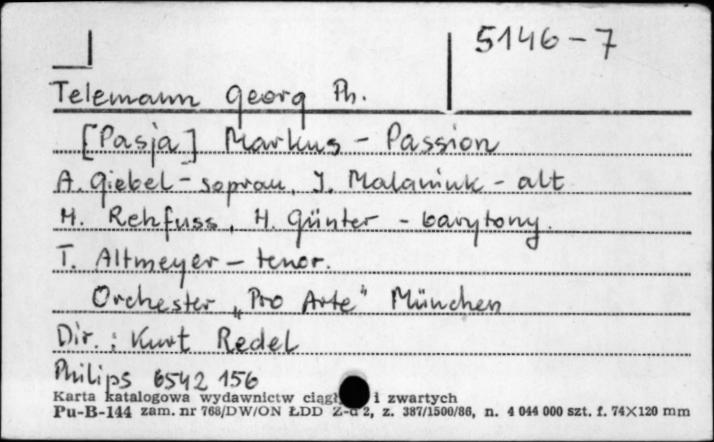 5146-7
Telemann Georg Ph.
[Pasja] Markus - Passion
A. Giebel - sopran, I. Malaniuk - alt
H. Rehfuss, H. Günter - barytony.
T. Altmeyer - tenor.
Orchester „Pro Arte" München
Dir.: Kurt Redel
Philips 6542 156
Karta katalogowa wydawnictw i zwartych
Pu-B-144 zam. nr 768/DW/ON ŁDD z. 387/1500/86, n. 4 044 000 szt. f. 74×120 mm